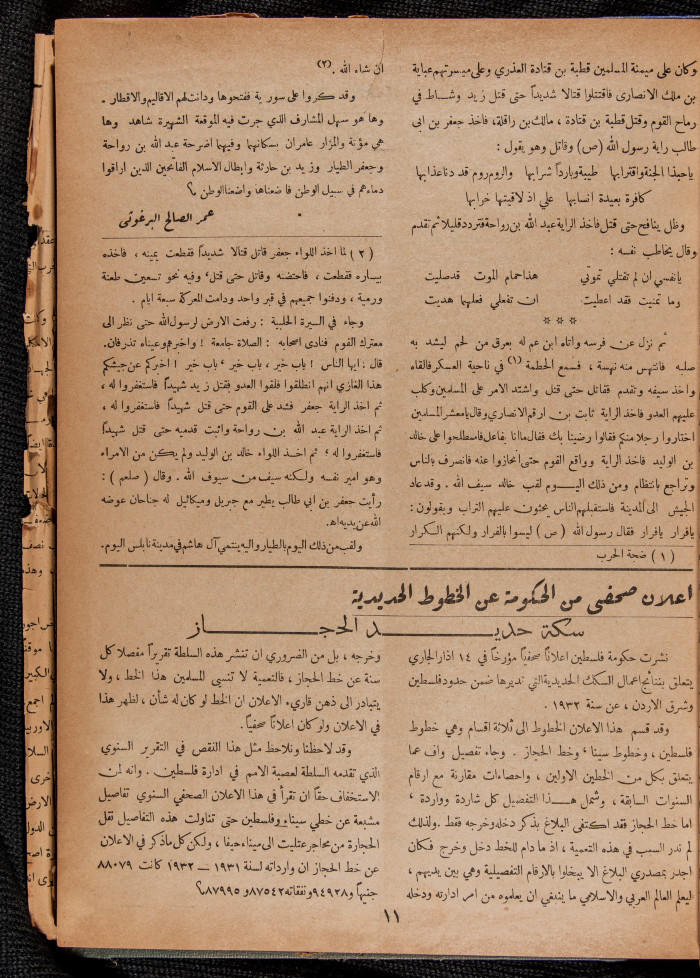 وكان على ميمنة المسلمين قطبة بن قتادة العذري وعلى ميسرتهم عباية
بن ملك الانصاري فاقتتلوا قتالا شديداً حتى قتل زيد وشاط في
رماح القوم وقتل قطبة بن قتادة ، مالك بن راقلة، فاخذ جعفر بن ابى
طالب راية رسول الله (ص) وقاتل وهو يقول :
ياحبذا الجنة واقترابها طيبة وبارداً شرابها والروم روم قد دنا عذابها
كافرة بعيدة انسابها علي اذ لاقيتها ضرابها
وظل ينافح حتى قتل فاخذ الراية عبد الله بن رواحة فتردد قليلا ثم تقدم
وقال يخاطب نفسه :
يانفسي ان لم تقتلي تموتي هذا حمام الموت قد صليت
وما تمنيت فقد اعطيت ان تفعلي فعلهما هديت
* * *
ثم نزل عن فرسه واتاه ابن عم له بعرق من لحم ليشد به
صلبه فانتهس منه نهسة ، فسمع الحطمة (١) في ناحية العسكر فالقاه
واخذ سيفه وتقدم فقاتل حتى قتل واشتد الامر على المسلمين وكلب
عليهم العدو فاخذ الراية ثابت بن ارقم الانصاري وقال يا معشر المسلمين
اختاروا رجلا منكم فقالوا رضينا بك فقال ما انا بفاعل فاصطلحوا على خالد
بن الوليد فاخذ الراية وواقع القوم حتى انحازوا عنه فانصرف بالناس
وتراجع بانتظام ومن ذلك اليوم لقب خالد سيف الله . وقد عاد
الجيش الى المدينة فاستقبلهم الناس يحثون عليهم التراب ويقولون :
يافرار يافرار فقال رسول الله (ص) ليسوا بالفرار ولكنهم الكرار
(١) ضجة الحرب
ان شاء الله . (٢)
وقد كروا على سورية ففتحوها ودانت لهم الاقاليم والاقطار .
وها هو سهل المشارف الذي جرت فيه الموقعة الشهيرة شاهد وها
هي مؤتة والمزار عامران بسكانهما وفيهما اضرحة عبد الله بن رواحة
وجعفر الطيار وزيد بن حارثة وابطال الاسلام الفاتحين الذين اراقوا
دماءهم في سبيل الوطن فاضعناها واضعنا الوطن ؟
عمر الصالح البرغوثي
(٢) لما اخذ اللواء جعفر قاتل قتالا شديداً فقطعت يمينه ، فاخذه
بيساره فقطعت ، فاحتضنه وقاتل حتى قتل ، وفيه نحو تسعين طعنة
ورمية ، ودفنوا جميعهم في قبر واحد ودامت المعركة سبعة ايام .
وجاء في السيرة الحلبية : رفعت الارض لرسول الله حتى نظر الى
معترك القوم فنادى اصحابه : الصلاة جامعة ! واخبرهم وعيناه تذرفان .
قال : ايها الناس ! باب خير ، باب خير ، باب خير ! اخبركم عن جيشكم
هذا الغازي انهم انطلقوا فلقوا العدو فقتل زيد شهيداً فاستغفروا له ،
ثم اخذ الراية جعفر فشد على القوم حتى قتل شهيداً فاستغفروا له ،
ثم اخذ الراية عبد الله بن رواحة واثبت قدميه حتى قتل شهيداً
فاستغفروا له ؛ ثم اخذ اللواء خالد بن الوليد ولم يكن من الامراء
وهو امير نفسه ولكنه سيف من سيوف الله . وقال (صلعم) :
رأيت جعفر بن ابي طالب يطير مع جبريل وميكائيل له جناحان عوضه
الله عن يديه اهـ
ولقب من ذلك اليوم بالطيار واليه ينتمي آل هاشم في مدينة نابلس اليوم .
اعلان صحفي من الحكومة عن الخطوط الحديدية
سكة حديد الحجاز
نشرت حكومة فلسطين اعلاناً صحفياً مؤرخاً في ١٤ اذار الجاري
يتعلق بنتائج اعمال السكك الحديدية التي تديرها ضمن حدود فلسطين
وشرق الاردن ، عن سنة ١٩٣٢ .
وقد قسم هذا الاعلان الخطوط الى ثلاثة اقسام وهي خطوط
فلسطين ، وخطوط سينا ، وخط الحجاز . وجاء تفصيل واف عما
يتعلق بكل من الخطين الاولين ، واحصاءات مقارنة مع ارقام
السنوات السابقة ، وشمل هذا التفصيل كل شاردة وواردة ،
اما خط الحجاز فقد اكتفى البلاغ بذكر دخله وخرجه فقط . ولذلك
لم ندر السبب في هذه التعمية ، اذ ما دام للخط دخل وخرج فكان
اجدر بمصدري البلاغ الا يبخلوا بالارقام التفصيلية وهي بين يديهم ،
ليعلم العالم العربي والاسلامي ما ينبغي ان يعلموه من امر ادارته ودخله
وخرجه ، بل من الضروري ان تنشر هذه السلطة تقريراً مفصلا كل
سنة عن خط الحجاز ، فالتعمية لا تنسي المسلمين هذا الخط ، ولا
يتبادر الى ذهن قارىء الاعلان ان الخط لو كان له شأن ، لظهر هذا
في الاعلان ولو كان اعلاناً صحفياً .
وقد لاحظنا ونلاحظ مثل هذا النقص في التقرير السنوي
الذي تقدمه السلطة لعصبة الامم في ادارة فلسطين . وانه لمن
الاستخفاف حقاً ان تقرأ في هذا الاعلان الصحفي السنوي تفاصيل
مشبعة عن خطي سيناء وفلسطين حتى تناولت هذه التفاصيل نقل
الحجارة من محاجر عتليت الى ميناء حيفا ، ولكن كل ما ذكر في الاعلان
عن خط الحجاز ان وارداته لسنة ١٩٣١ — ١٩٣٢ كانت ٨٨٠٧٩
جنيهاً و٩٤٩٢٨ ونفقاته ٨٧٥٤٢ و٨٧٩٩٥ ؟
١١